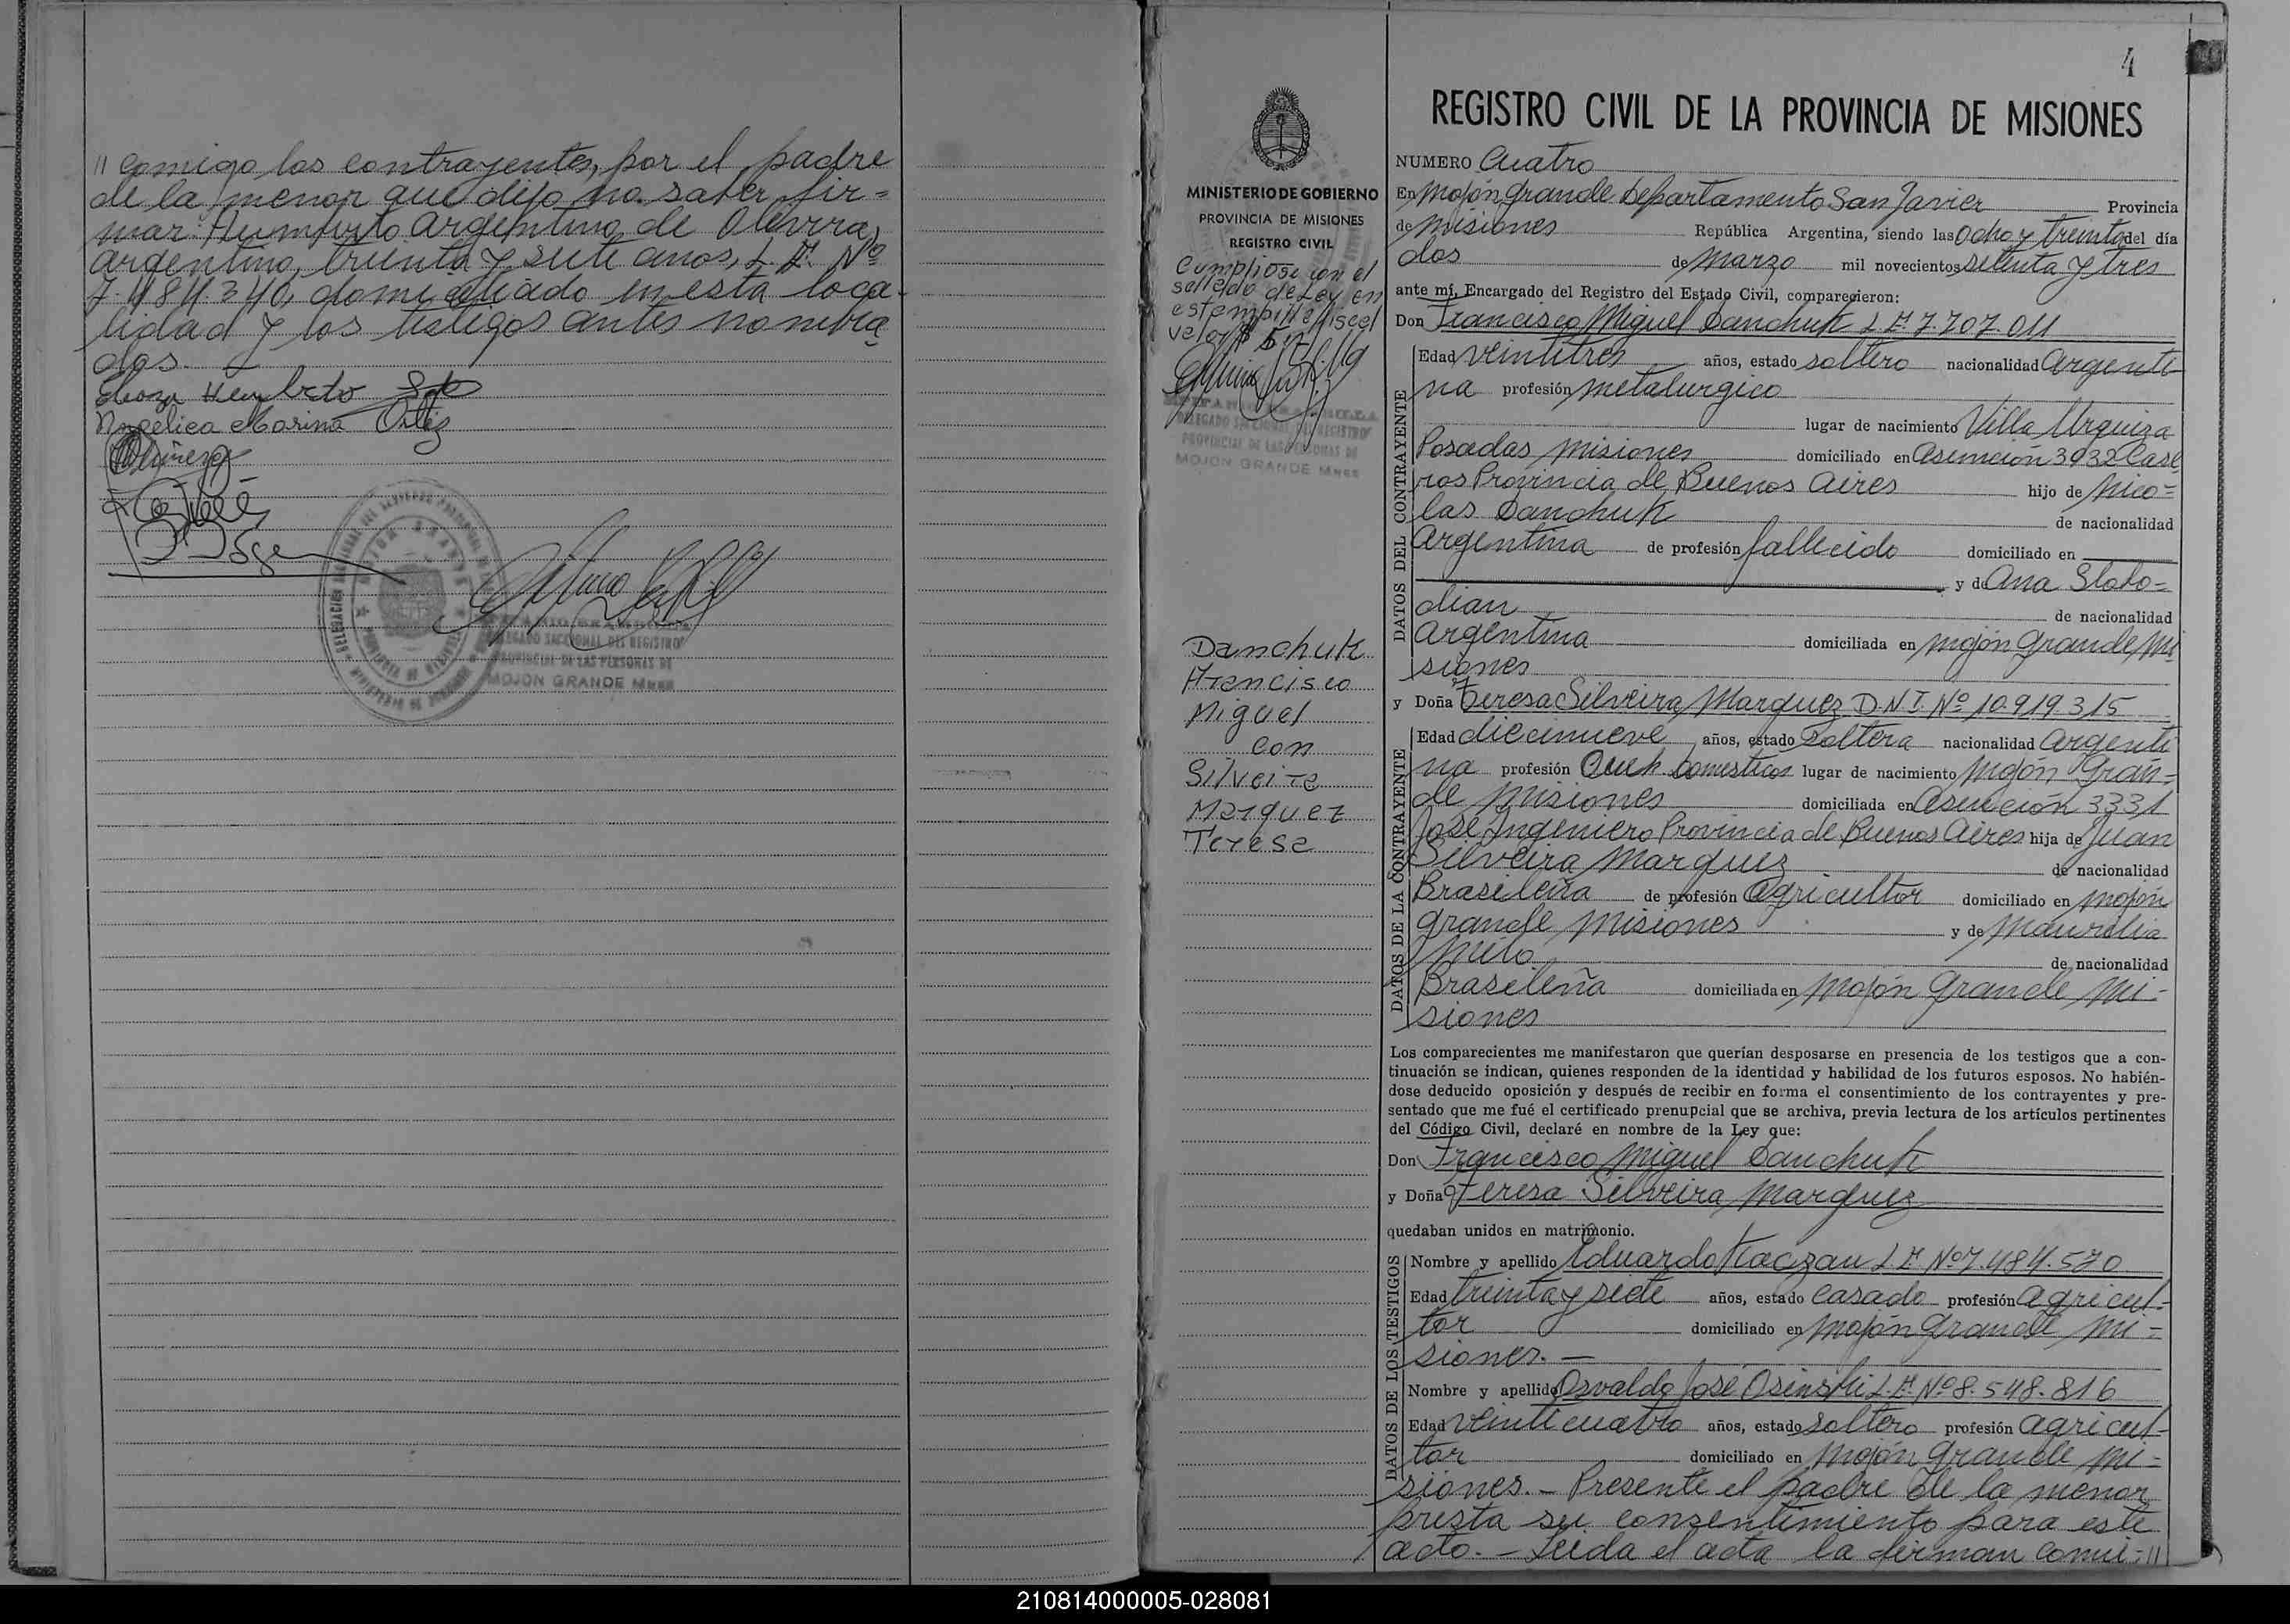 // comigo los contrayentes, por el padre
de la menor que dijo no saber fir=
mar: Humberto Argentino de Olivera,
argentino, treinta y siete anos, L. E. Nº
7.484.340, domiciliado en esta loca-
lidad y los testigos antes nombra
dos.
Humberto
Angelica Marina Ortiz
DELEGADO SECCIONAL DEL REGISTRO
PROVINCIAL DE LAS PERSONAS DE
MOJON GRANDE Mnes
4
MINISTERIO DE GOBIERNO
PROVINCIA DE MISIONES
REGISTRO CIVIL
Cumpliose con el
sellado de Ley en
estampilla fiscal
valor $
DELEGADO SECCIONAL DEL REGISTRO
PROVINCIAL DE LAS PERSONAS DE
MOJON GRANDE Mnes
Danchuk
Francisco
Miguel
con
Silveira
Marquez
Teresa
REGISTRO CIVIL DE LA PROVINCIA DE MISIONES
NUMERO Cuatro
En Mojón Grande Departamento San Javier Provincia
de Misiones República Argentina, siendo las Ocho y treinta del día
dos de Marzo mil novecientos setenta y tres
ante mí, Encargado del Registro del Estado Civil, comparecieron:
Don Francisco Miguel Danchuk L.E. 7.707.011
DATOS DEL CONTRAYENTE
Edad veintitres años, estado soltero nacionalidad argenti
na profesión metalurgico
lugar de nacimiento Villa Urquiza
Posadas Misiones domiciliado en Asuncion 3932 Case
ros Provincia de Buenos Aires hijo de Nico=
las Danchuk de nacionalidad
Argentina de profesión fallecido domiciliado en
y de Ana Slobo=
dian de nacionalidad
Argentina domiciliada en Mojón Grande Mi
siones
y Doña Teresa Silveira Marquez D.N.I. Nº 10.919.315
DATOS DE LA CONTRAYENTE
Edad diecinueve años, estado Soltera nacionalidad argenti
na profesión Queh. Domesticos lugar de nacimiento Mojón Gran=
de Misiones domiciliada en Asunción 3331
José Ingeniero Provincia de Buenos Aires hija de Juan
Silveira Marquez de nacionalidad
Brasileña de profesión Agricultor domiciliado en Mojón
Grande Misiones y de Maurilia
Melo de nacionalidad
Brasileña domiciliada en Mojón Grande Mi-
siones
Los comparecientes me manifestaron que querían desposarse en presencia de los testigos que a con-
tinuación se indican, quienes responden de la identidad y habilidad de los futuros esposos. No habién-
dose deducido oposición y después de recibir en forma el consentimiento de los contrayentes y pre-
sentado que me fué el certificado prenupcial que se archiva, previa lectura de los artículos pertinentes
del Código Civil, declaré en nombre de la Ley que:
Don Francisco Miguel Danchuk
y Doña Teresa Silveira Marquez
quedaban unidos en matrimonio.
DATOS DE LOS TESTIGOS
Nombre y apellido Eduardo Kaczan L.E. Nº 7.484.570
Edad treinta y siete años, estado Casado profesión Agricul-
tor domiciliado en Mojón Grande Mi=
siones. —
Nombre y apellido Osvaldo José Osinski L.E. Nº 8.548.816
Edad Veinticuatro años, estado soltero profesión Agricul-
tor domiciliado en Mojón Grande Mi=
siones. - Presente el padre de la menor
presta su consentimiento para este
acto. - Leida el acta la firman comi-//
210814000005-028081